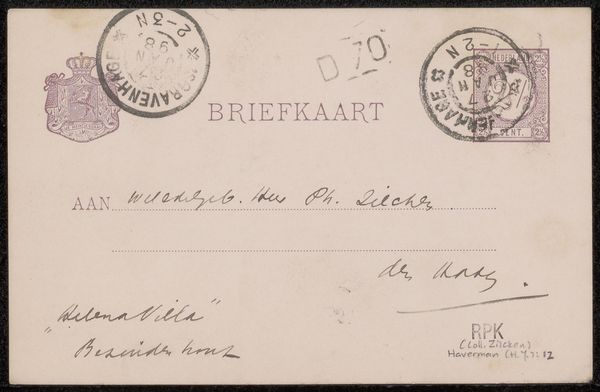 'S GRAVENHAGE
2-3N
98
D 70
NEDERLAND
1-2N
CENT.
BRIEFKAART
AAN Weledelgeb. Heer Ph. Zilcken
den Haag
"Helena Villa"
Bezuidenhout
RPK
(Coll. Zilcken)
Haverman (H.J.): 12